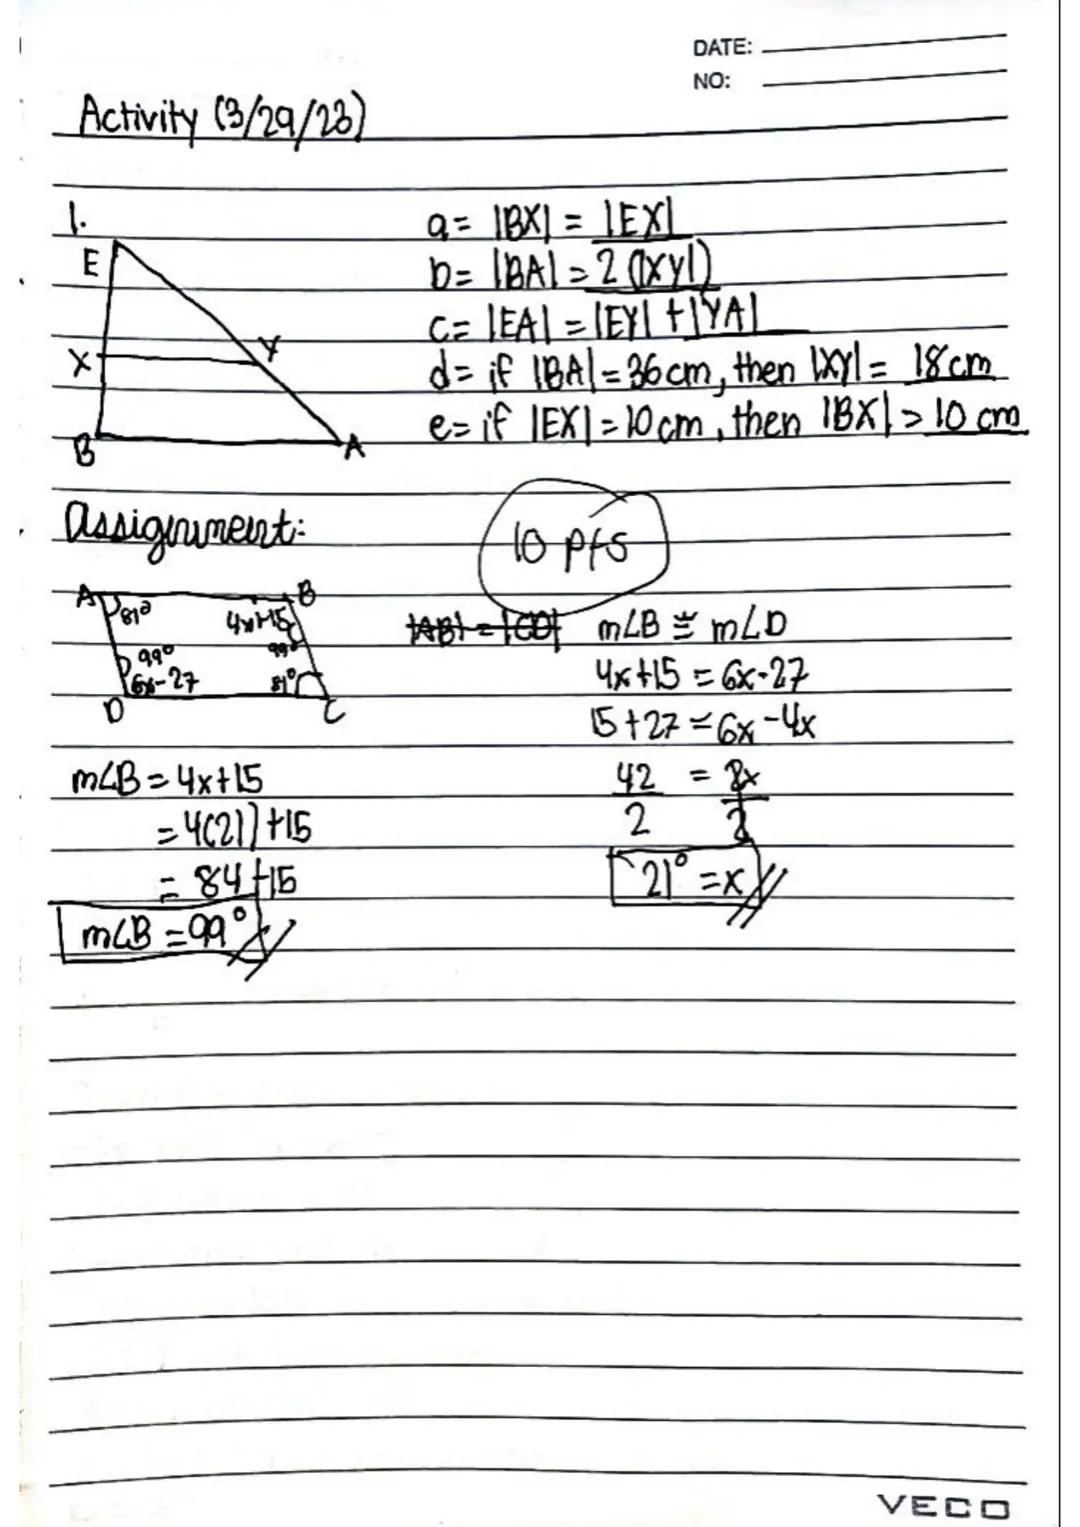 DATE:
NO:
Activity (3/29/23)
1.
E
X
Y
B
A
a = |BX| = |EX|
b = |BA| = 2 (|XY|)
c = |EA| = |EY| + |YA|
d = if |BA| = 36 cm, then |XY| = 18 cm
e = if |EX| = 10 cm, then |BX| = 10 cm
Assignment:
10 pts
A
B
81°
4x+15
99°
99°
6x-27
81°
D
C
|AB| = |CD|
m∠B ≅ m∠D
4x+15 = 6x-27
15+27 = 6x-4x
42 = 2x
2 2
21° = x
m∠B = 4x+15
= 4(21)+15
= 84+15
m∠B = 99°
VECO